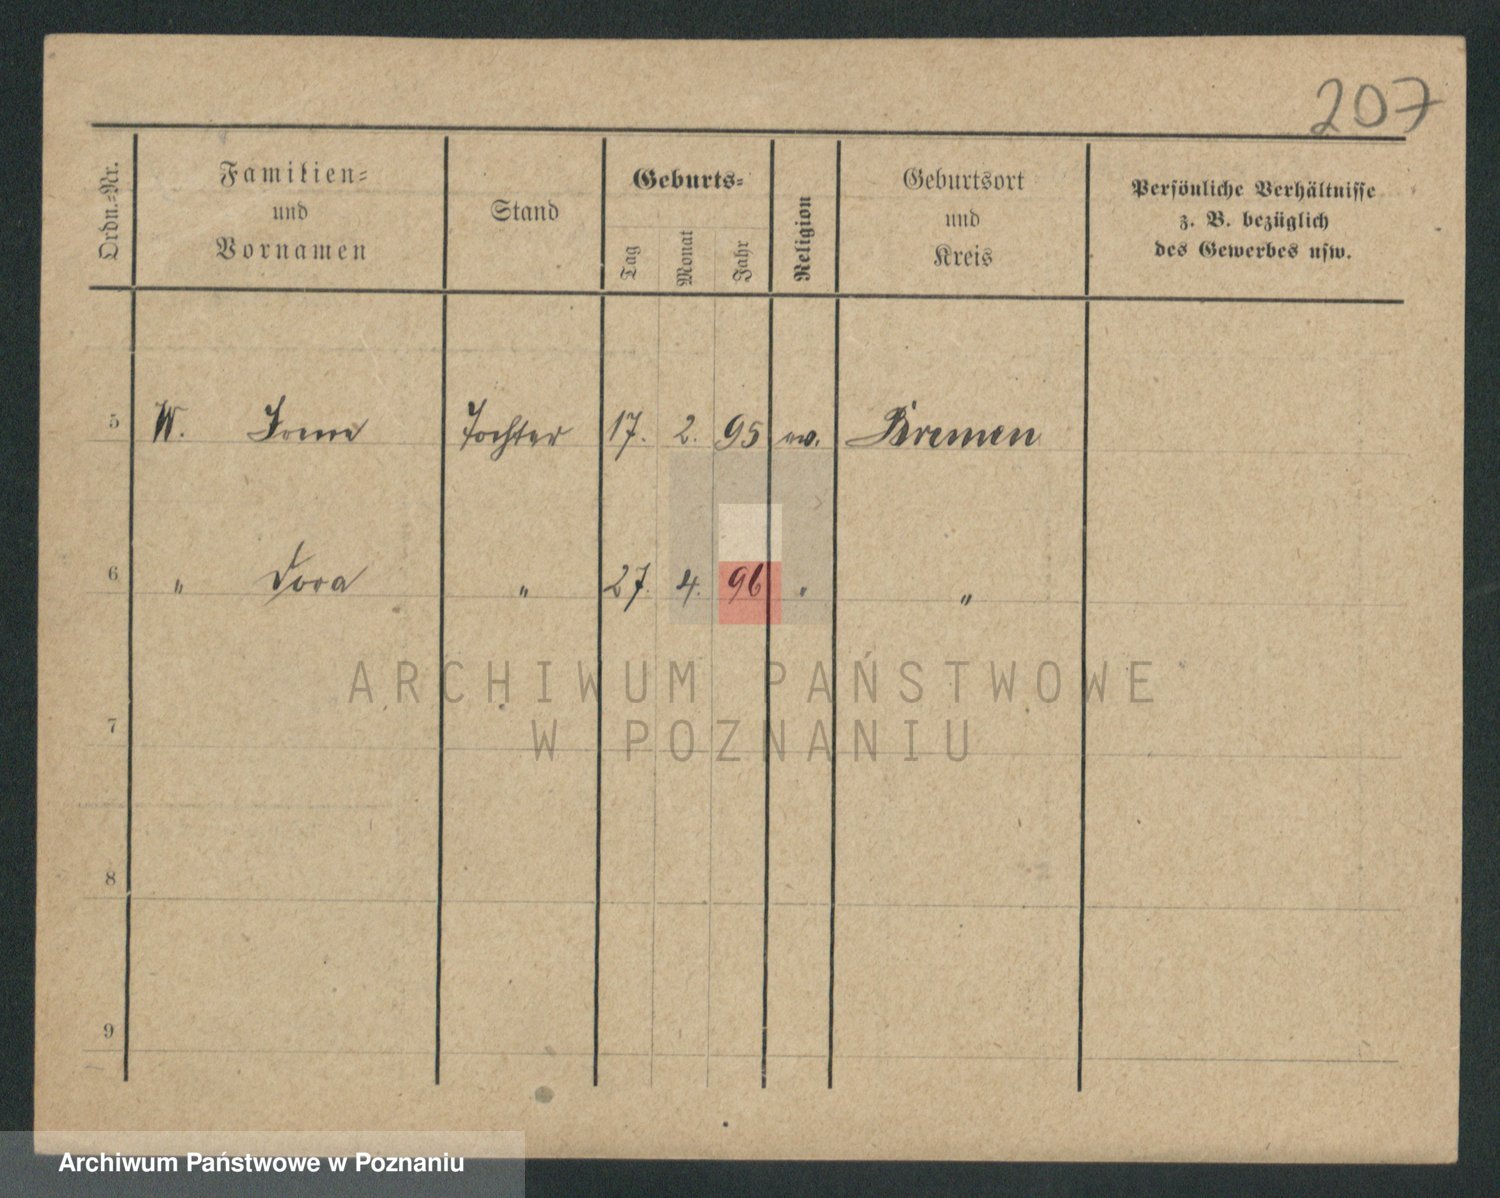 207
Ordn.-Nr.
Familien-
und
Vornamen
Stand
Geburts-
Tag
Monat
Jahr
Religion
Geburtsort
und
Kreis
Persönliche Verhältnisse
z. B. bezüglich
des Gewerbes usw.
5 W. Tochter 17. 2. 95 ev. Bremen
6 " Dora " 27. 4. 96 " "
7
8
9
ARCHIWUM PAŃSTWOWE
W POZNANIU
Archiwum Państwowe w Poznaniu